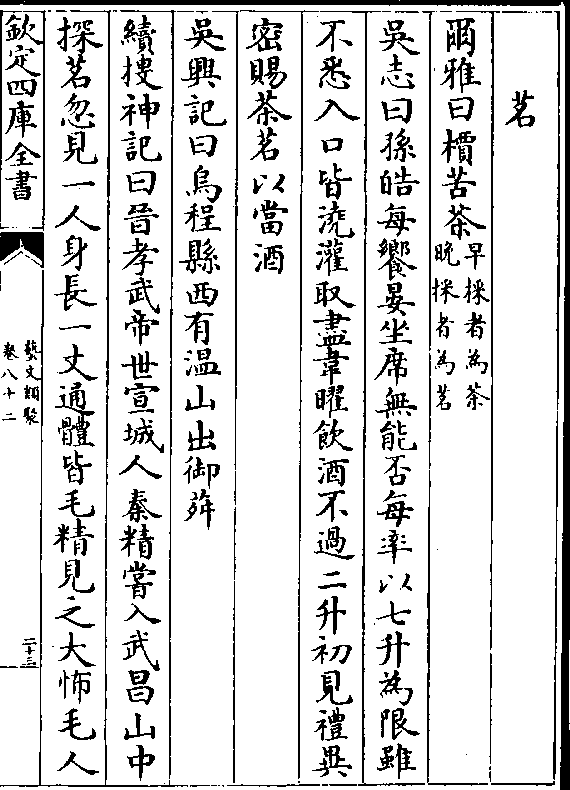 茗
爾雅曰檟苦荼早採者為茶晚採者為茗
吳志曰孫皓每饗晏坐席無能否每率以七升為限雖
不悉入口皆澆灌取盡韋曜飲酒不過二升初見禮異
密賜茶茗以當酒
吳興記曰烏程縣西有温山出御荈
續搜神記曰晉孝武帝世宣城人秦精嘗入武昌山中
探茗忽見一人身長一丈通體皆毛精見之大怖毛人
欽定四庫全書
藝文類聚
卷八十二
二十三